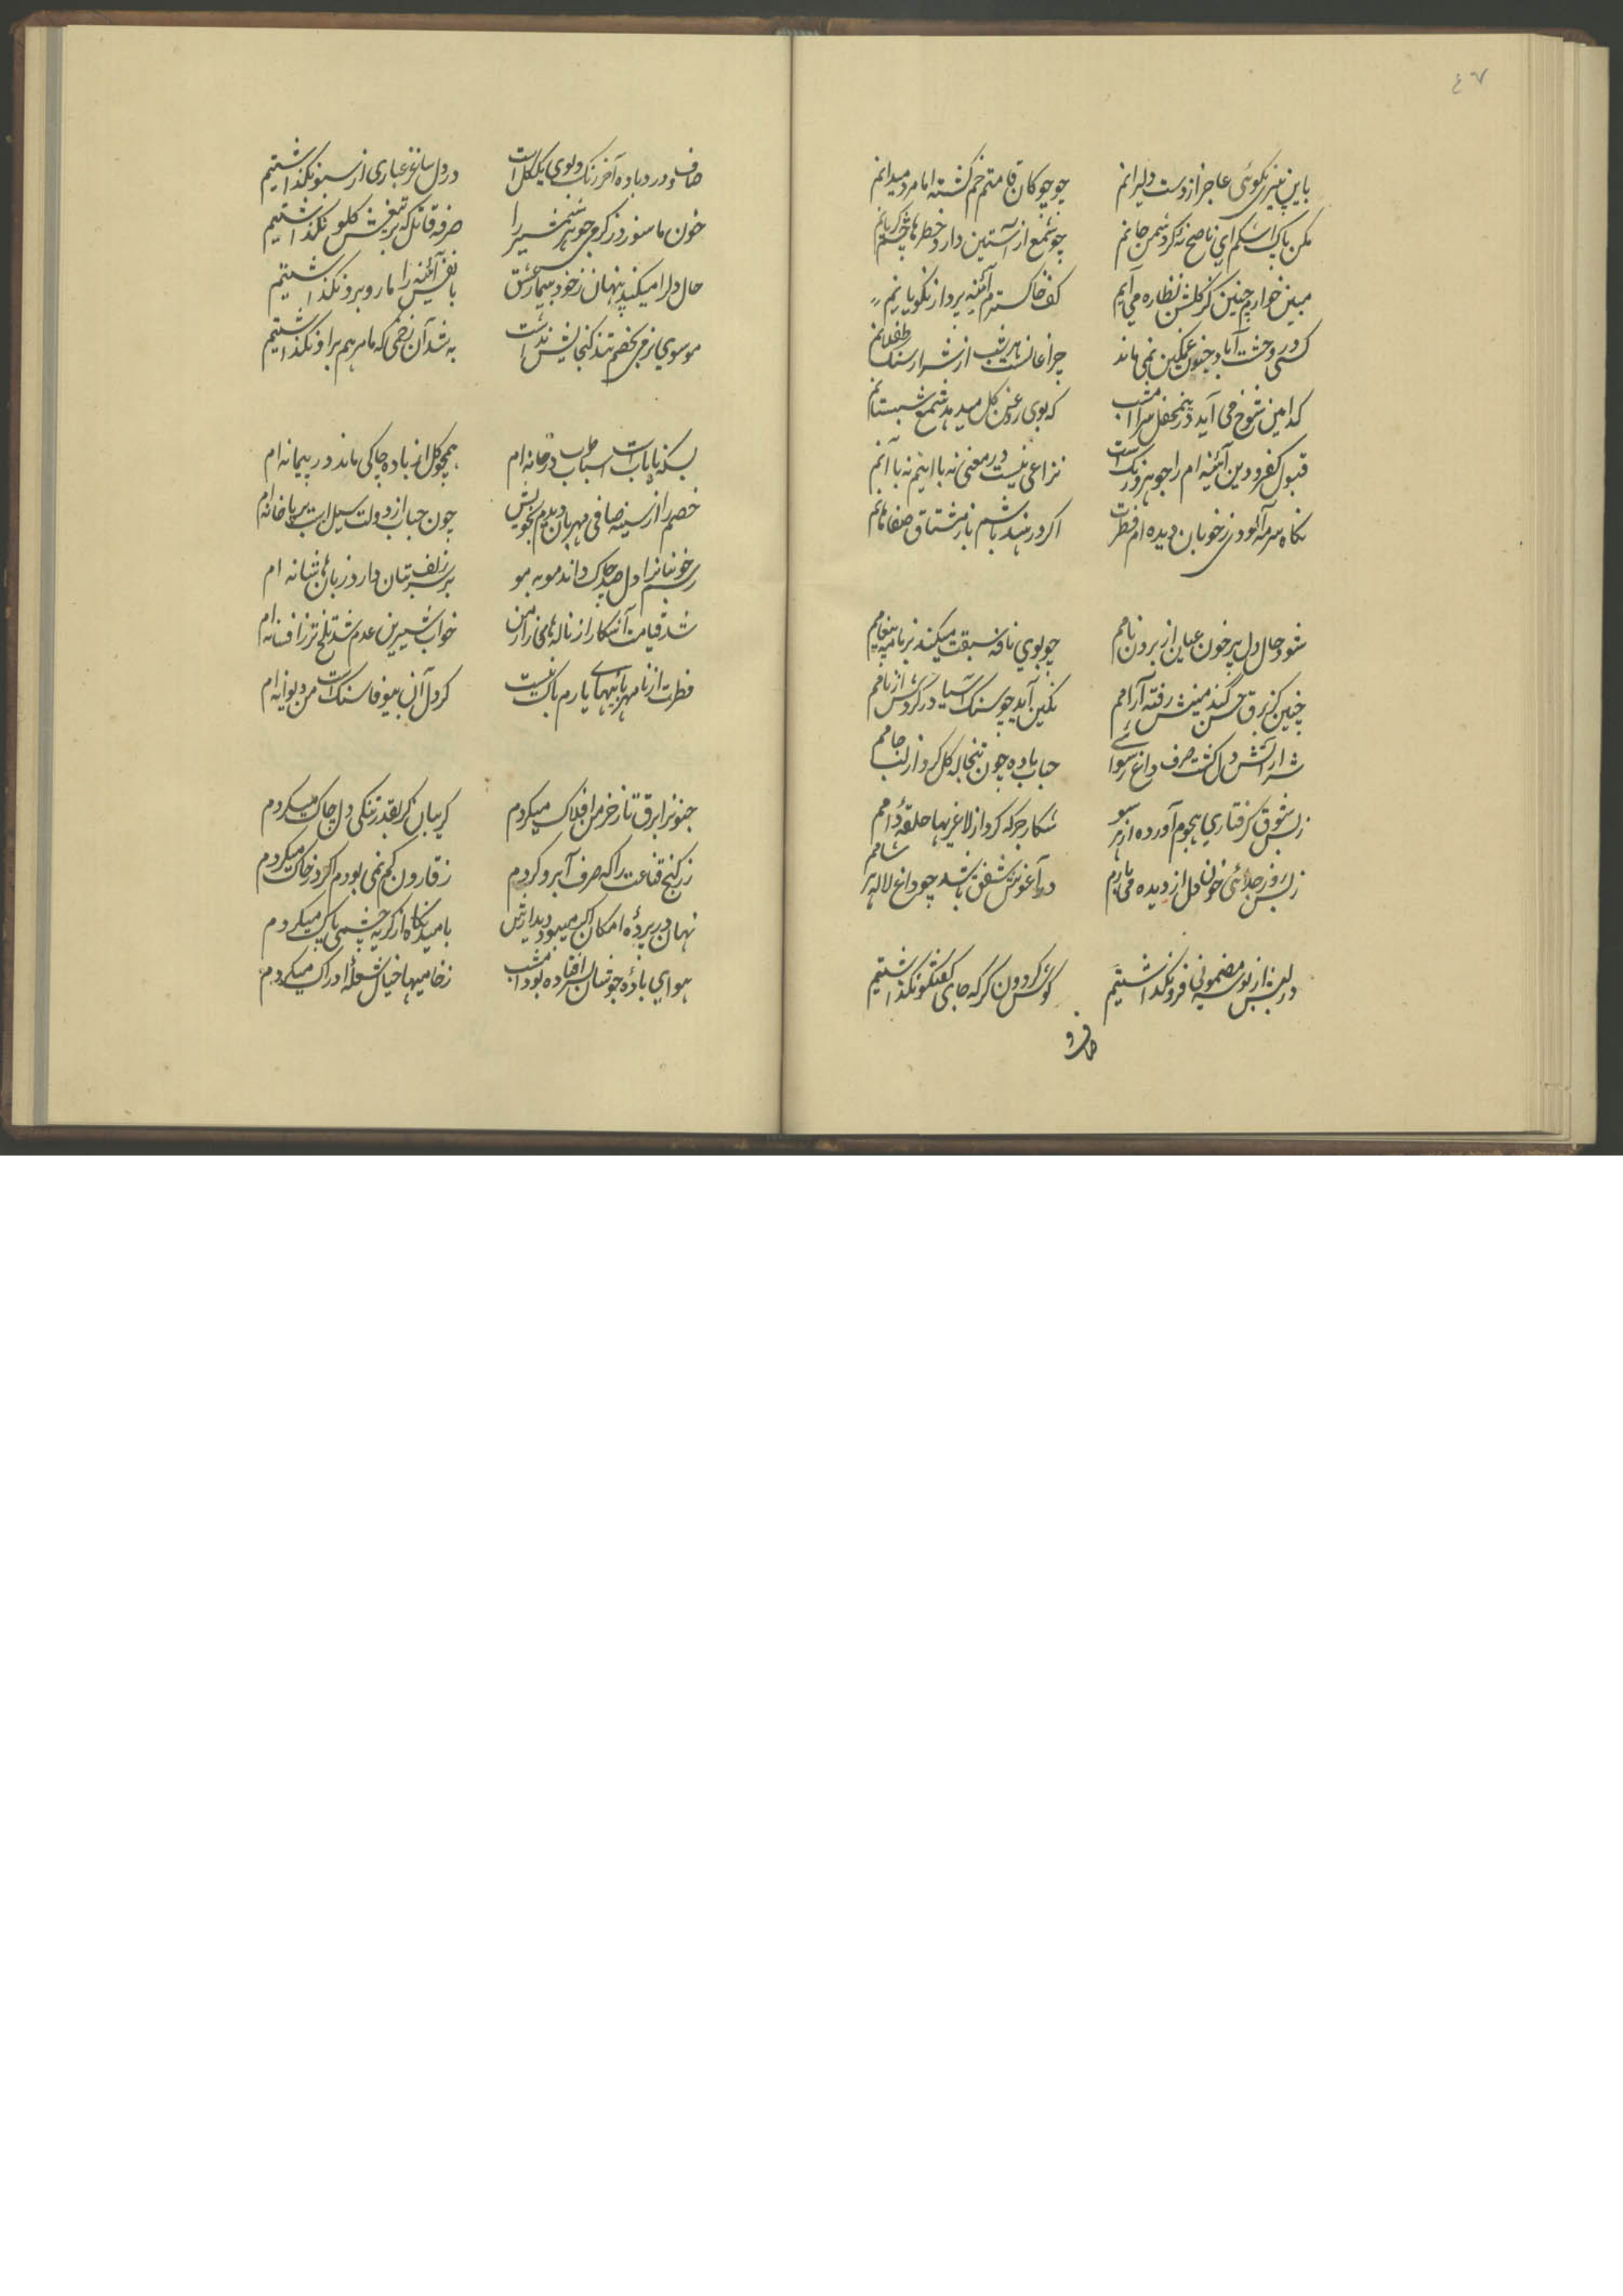 ٤٧
باین پیری نکوئی عاجز از دست دلیرانم چو چوکان قامتم خم کشته اما مرد میدانم
مکن پاک اشکم ای ناصح نه کر دشمن جانم چو شمع از آستین دارد خطرها چشم کریانم
مبین خوارم چنین کز کلشن نظاره می آیم کف خاکسترم آئینه پرداز نکویانم
کسی در وحشت آباد جنون غمکین نمی ماند چراغانست هر شب از شرار سنک طفلانم
کدامین شوخ می آید درین محفل سرا امشب که بوی روغن کل میدهد شمع شبستانم
قبول کفر و دین آئینه ام را جوهر فرد است نزاعی نیست در معنی نه با اینم نه با آنم
نکاه سرمه آلودی ز خوبان دیده ام فطرت اکر در هند باشم باز مشتاق صفاهانم
شود حال دل پر خون عیان از بردن نامم چو بوی نافه سبقت میکند بر نامه پیغامم
چنین کز برق حسن کندمینش رفته آرامم نکین آید چو سنک آسیا در کردش از نامم
شرار آتش دل کشت صرف داغ رسوائی حباب باده چون تبخاله کل کرد از لب جامم
ز بس شوق کرفتاری هجوم آورده از هر سو شکار جرکه کرد از لاغریها حلقهٔ دامم
ز بس روز جدائی خون دل از دیده می بارم در آغوش شفق باشد چو داغ لاله هر شامم
در لبش از بوسه مضمونی فرو نکذاشتیم کوش کردون کر که جای کفتکو نکذاشتیم
صاف و
صاف و درد باده آخر رنک و بوی یک کل است در دل ساغر غباری از سبو نکذاشتیم
خون ما سوزد ز کرمی جوهر شمشیر را صرفه قاتل که بر تیغش کلو نکذاشتیم
حال دل را میکند پنهان ز خود بیمار عشق با نفس آئینه را ما روبرو نکذاشتیم
موسوی نرمی بخصم تند کنجایش نداشت به شد آن زخمی که ما مرهم برو نکذاشتیم
بسکه نایاب است اسباب طرب در خانه ام همچو کل از باده چاکی ماند در پیمانه ام
خصم را از سینه صافی مهربان دیدم بخویش چون حباب از دولت سیل است برپا خانه ام
رسم خوبان را دل صد چاک داند مو به مو بر سر زلف بتان دارد زبانها شانه ام
شد قیامت آشکار از ناله های زار من خواب شیرین عدم شد تلخ تر ز افسانه ام
فطرت از نامهربانیهای یارم باک نیست کر دل آن بیوفا سنک است من دیوانه ام
جنونرا برق تاز خرمن افلاک میکردم کریبان کر بقدر تنکی دل چاک میکردم
زر کنج قناعت را که صرف آبرو کردم ز قارون کم نمی بودم اکر در خاک میکردم
نهان در پردهٔ امکان اکر میبود دیدارش بامید نکاه از کریه چشمی پاک میکردم
هوای بادهٔ جوشان بسر افتاده بود امشب ز خامیها خیال شعلهٔ ادراک میکردم